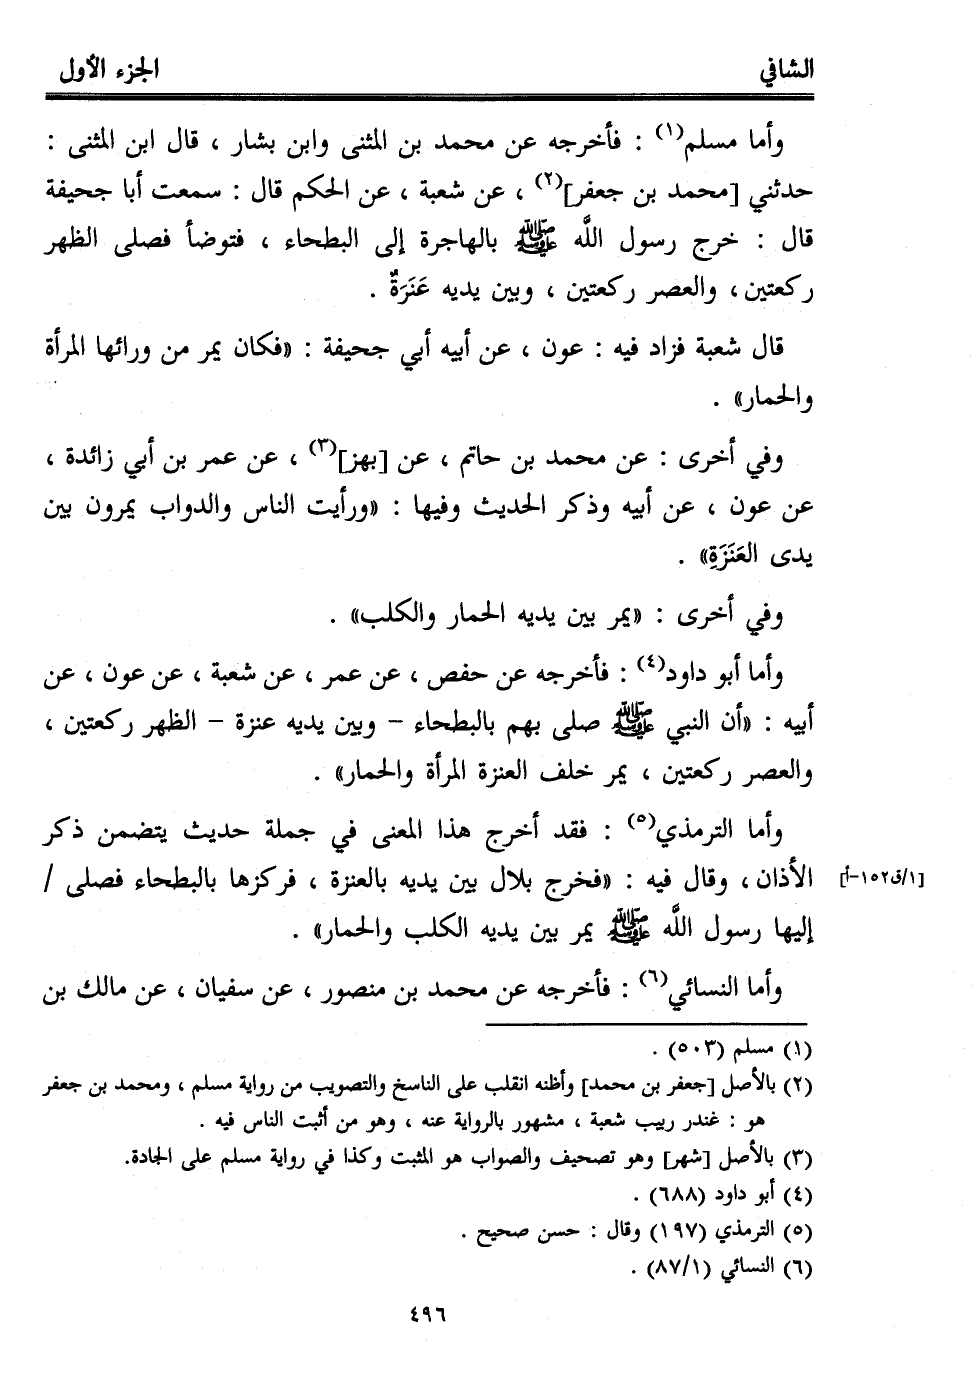 الشافي الجزء الأول
وأما مسلم(١) : فأخرجه عن محمد بن المثنى وابن بشار ، قال ابن المثنى :
حدثني [محمد بن جعفر](٢) ، عن شعبة ، عن الحكم قال : سمعت أبا جحيفة
قال : خرج رسول اللَّه ﷺ بالهاجرة إلى البطحاء ، فتوضأ فصلى الظهر
ركعتين، والعصر ركعتين ، وبين يديه عَنَزَةٌ .
قال شعبة فزاد فيه : عون ، عن أبيه أبي جحيفة : «فكان يمر من ورائها المرأة
والحمار» .
وفي أخرى : عن محمد بن حاتم ، عن [بهز](٣) ، عن عمر بن أبي زائدة ،
عن عون ، عن أبيه وذكر الحديث وفيها : «ورأيت الناس والدواب يمرون بين
يدى العَنَزَةِ» .
وفي أخرى : «يمر بين يديه الحمار والكلب» .
وأما أبو داود(٤) : فأخرجه عن حفص ، عن عمر ، عن شعبة ، عن عون ، عن
أبيه : «أن النبي ﷺ صلى بهم بالبطحاء - وبين يديه عنزة - الظهر ركعتين ،
والعصر ركعتين ، يمر خلف العنزة المرأة والحمار» .
وأما الترمذي(٥) : فقد أخرج هذا المعنى في جملة حديث يتضمن ذكر
الأذان، وقال فيه : «فخرج بلال بين يديه بالعنزة ، فركزها بالبطحاء فصلى / [١/ق١٥٢-أ]
إليها رسول اللَّه ﷺ يمر بين يديه الكلب والحمار» .
وأما النسائي(٦) : فأخرجه عن محمد بن منصور ، عن سفيان ، عن مالك بن
(١) مسلم (٥٠٣) .
(٢) بالأصل [جعفر بن محمد] وأظنه انقلب على الناسخ والتصويب من رواية مسلم ، ومحمد بن جعفر
هو : غندر ربيب شعبة ، مشهور بالرواية عنه ، وهو من أثبت الناس فيه .
(٣) بالأصل [شهر] وهو تصحيف والصواب هو المثبت وكذا في رواية مسلم على الجادة.
(٤) أبو داود (٦٨٨) .
(٥) الترمذي (١٩٧) وقال : حسن صحيح .
(٦) النسائي (٨٧/١) .
٤٩٦